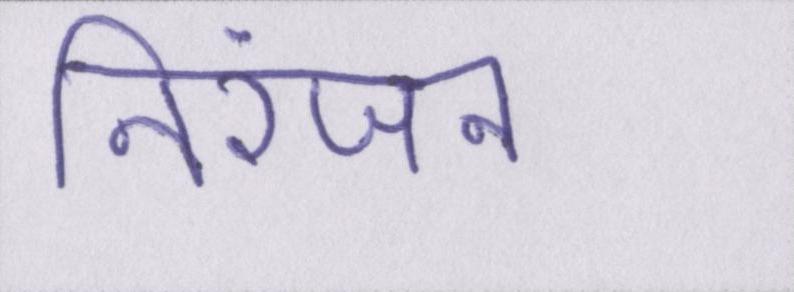 निरंजन